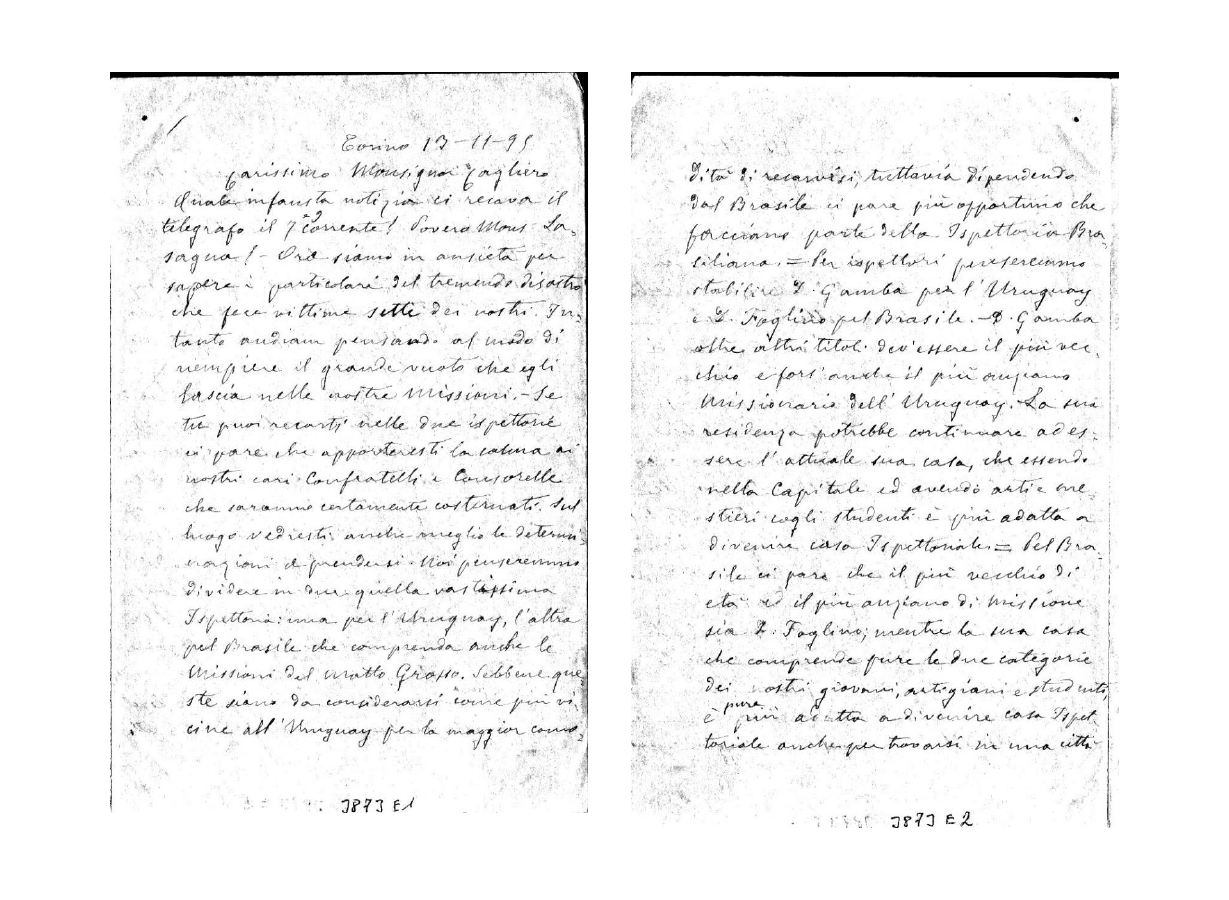 Torino 13-11-95
Carissimo Monsignor Cagliero
Quale infausta notizia ci recava il
telegrafo il 7 corrente! Povero Mons. La-
sagna! - Ora siamo in ansietà per
sapere i particolari del tremendo disastro
che fece vittime sette dei nostri. In-
tanto andiam pensando al modo di
riempiere il grande vuoto che egli
lascia nelle nostre Missioni. - Se
tu puoi recarti nelle due ispettorie
ci pare che apporteresti la calma ai
nostri cari Confratelli e Consorelle
che saranno certamente costernati. Sul
luogo vedresti anche meglio le determi-
nazioni a prendersi. Noi penseremmo
dividere in due quella vastissima
Ispettoria: una per l'Uruguay, l'altra
pel Brasile che comprenda anche le
Missioni del Matto Grosso. Sebbene que-
ste siano da considerarsi come più vi-
cine all'Uruguay per la maggior como-
J873 E1
dità di recarvisi, tuttavia dipendendo
dal Brasile ci pare più opportuno che
facciano parte della Ispettoria Bra-
siliana. = Per ispettori penseremmo
stabilire D. Gamba per l'Uruguay
e D. Foglino pel Brasile. - D. Gamba
oltre altri titoli dev'essere il più vec-
chio e fors'anche il più anziano
Missionario dell'Uruguay. La sua
residenza potrebbe continuare ad es-
sere l'attuale sua casa, che essendo
nella Capitale ed avendo arti e me-
stieri cogli studenti è più adatta a
divenire casa Ispettoriale = Pel Bra-
sile ci pare che il più vecchio di
età ed il più anziano di missione
sia D. Foglino; mentre la sua casa
che comprende pure le due categorie
dei nostri giovani, artigiani e studenti,
è pure più adatta a divenire casa Ispet-
toriale anche per trovarsi in una città
J873 E2